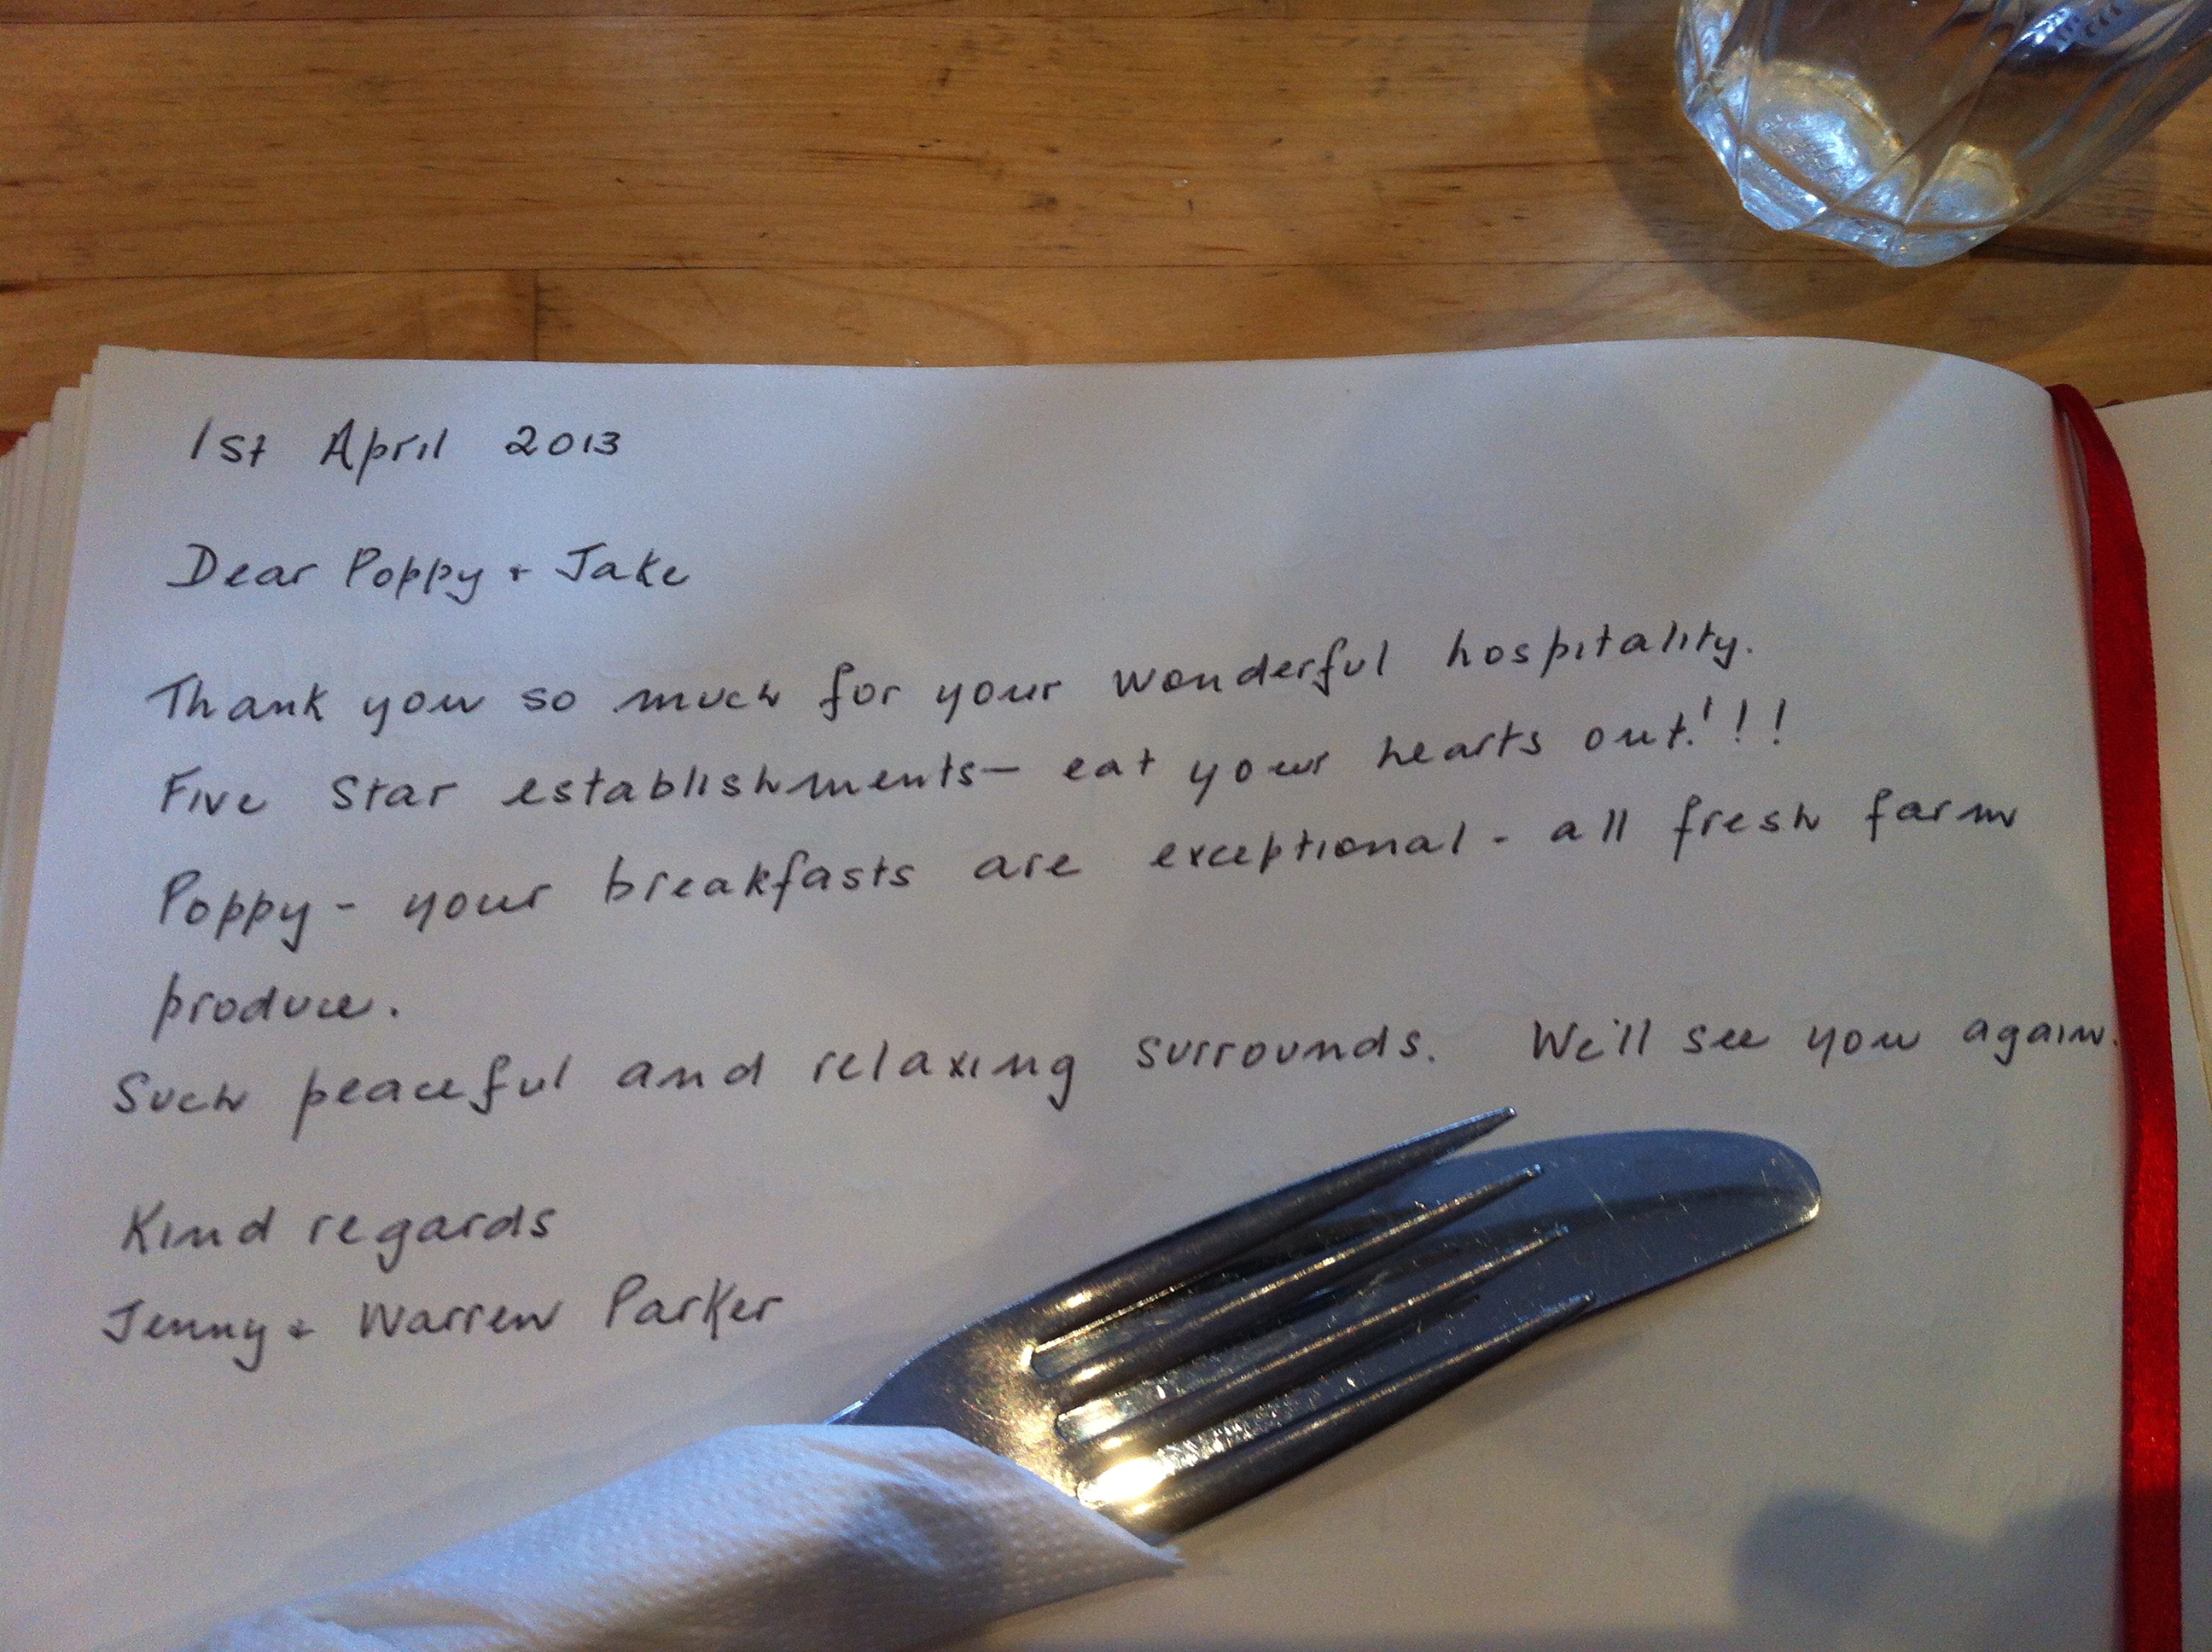 1st April 2013
Dear Poppy + Jake
Thank you so much for your wonderful hospitality.
Five Star establishments - eat your hearts out!!!
Poppy - your breakfasts are exceptional - all fresh farm
produce.
Such peaceful and relaxing surrounds. We'll see you again.
Kind regards
Jenny + Warren Parker